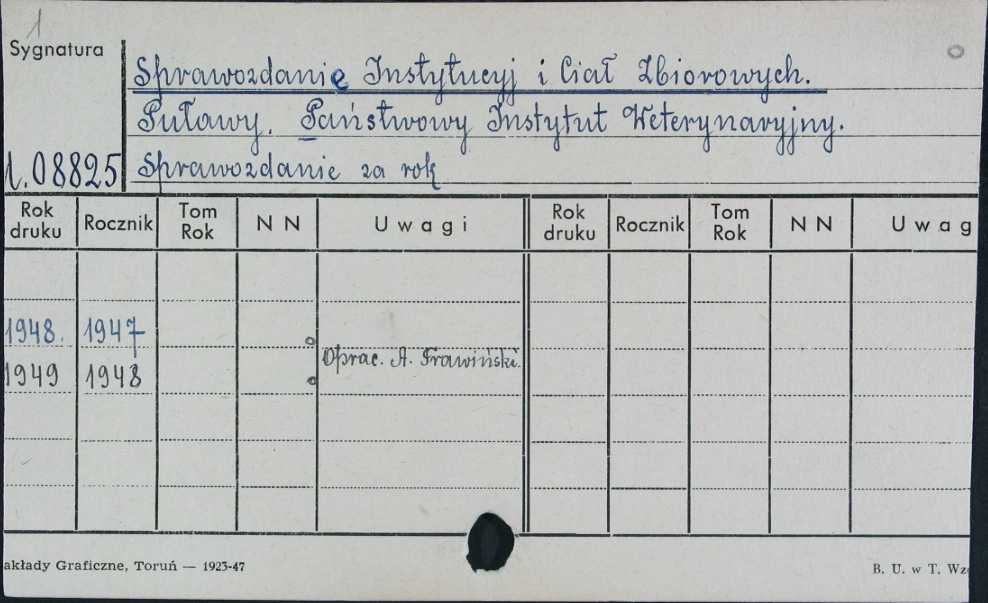 1
Sygnatura
Sprawozdanie Instytucyj i Ciał Zbiorowych.
Puławy. Państwowy Instytut Weterynaryjny.
1.08825
Sprawozdanie za rok
Rok druku Rocznik Tom Rok NN Uwagi Rok druku Rocznik Tom Rok NN Uwag
1948. 1947
Oprac. A. Trawiński.
1949 1948
akłady Graficzne, Toruń — 1923-47
B. U. w T. Wz